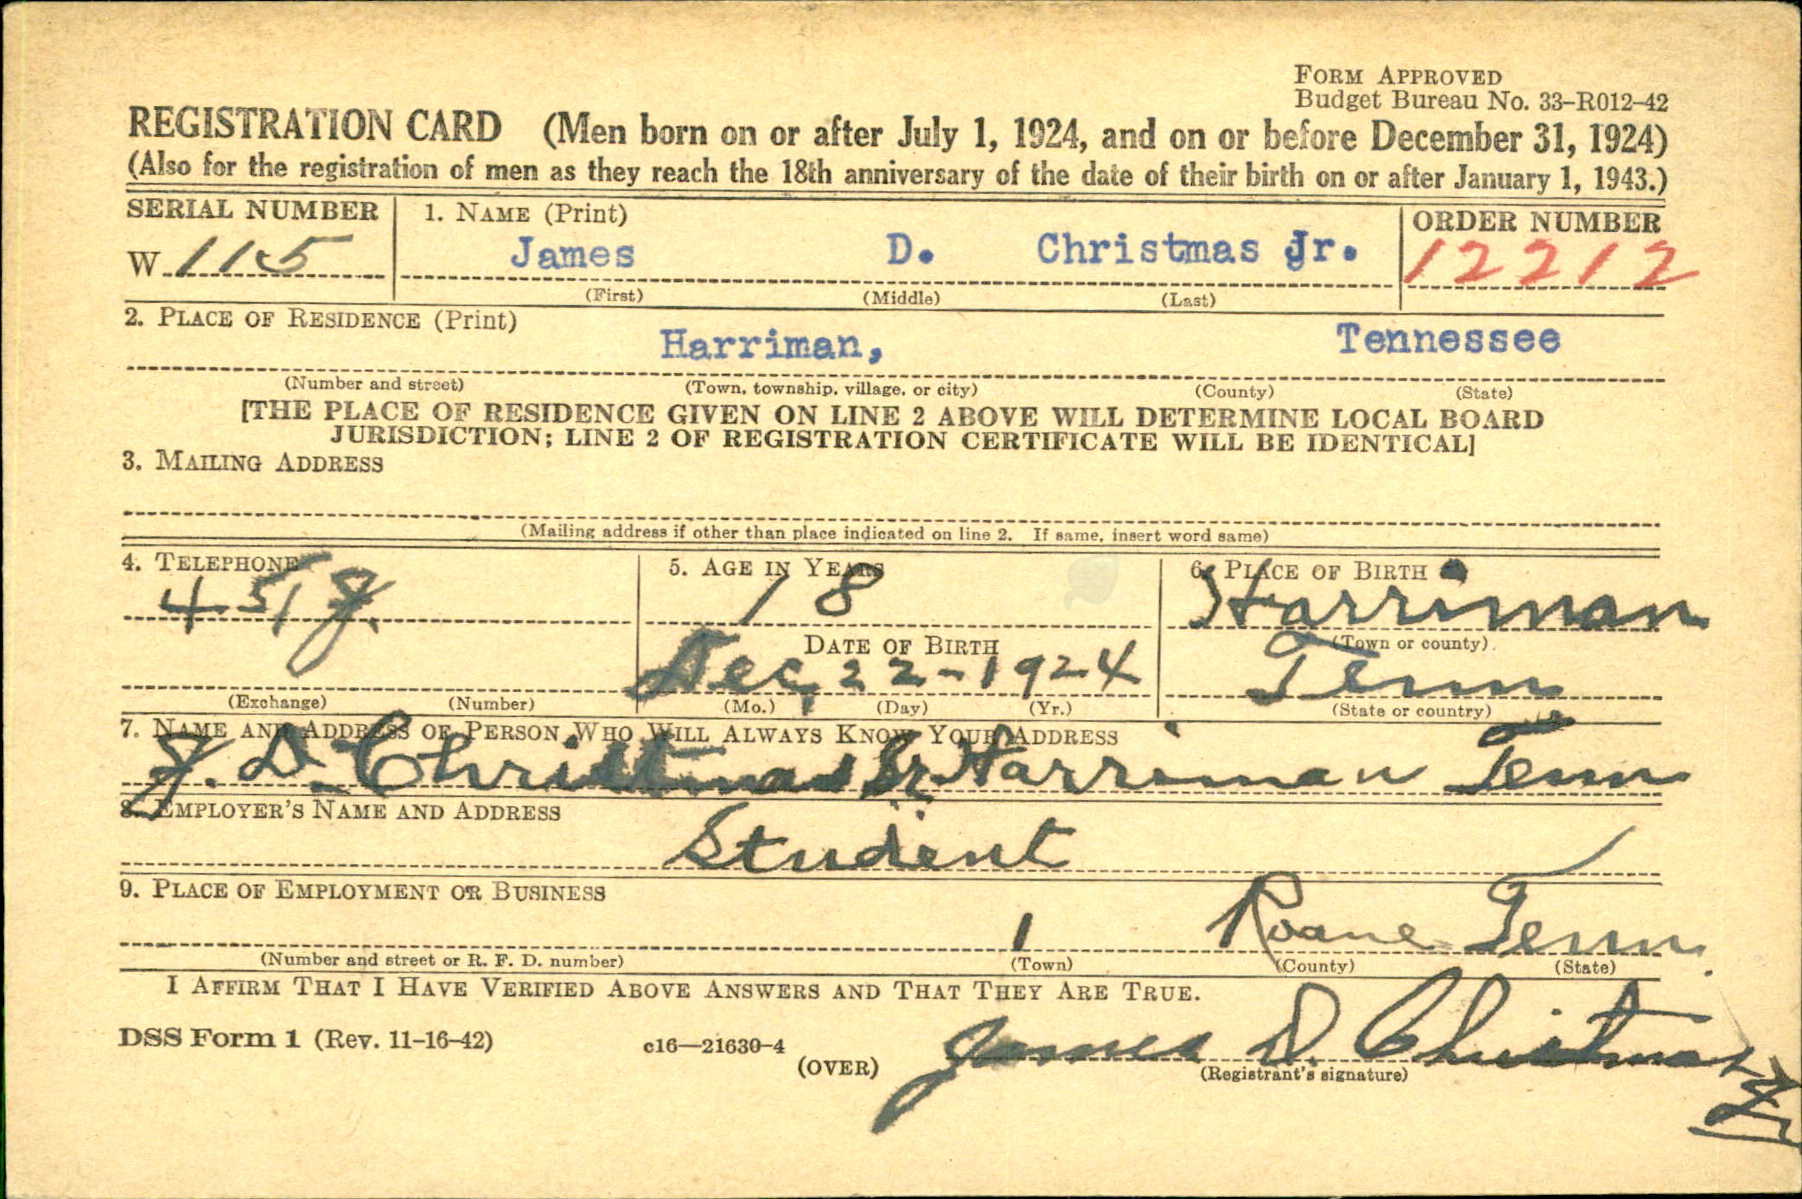 FORM APPROVED
Budget Bureau No. 33-R012-42
REGISTRATION CARD (Men born on or after July 1, 1924, and on or before December 31, 1924)
(Also for the registration of men as they reach the 18th anniversary of the date of their birth on or after January 1, 1943.)
SERIAL NUMBER 1. NAME (Print) ORDER NUMBER
W 115 James D. Christmas Jr. 12212
(First) (Middle) (Last)
2. PLACE OF RESIDENCE (Print)
Harriman, Tennessee
(Number and street) (Town, township, village, or city) (County) (State)
[THE PLACE OF RESIDENCE GIVEN ON LINE 2 ABOVE WILL DETERMINE LOCAL BOARD
JURISDICTION; LINE 2 OF REGISTRATION CERTIFICATE WILL BE IDENTICAL]
3. MAILING ADDRESS
(Mailing address if other than place indicated on line 2. If same, insert word same)
4. TELEPHONE 5. AGE IN YEARS 6. PLACE OF BIRTH
451 J. 18 Harriman
DATE OF BIRTH (Town or county)
Dec, 22-1924 Tenn
(Exchange) (Number) (Mo.) (Day) (Yr.) (State or country)
7. NAME AND ADDRESS OF PERSON WHO WILL ALWAYS KNOW YOUR ADDRESS
J. D. Christmas Sr Harriman Tenn
8. EMPLOYER'S NAME AND ADDRESS
Student
9. PLACE OF EMPLOYMENT OR BUSINESS
Roane Tenn.
(Number and street or R. F. D. number) (Town) (County) (State)
I AFFIRM THAT I HAVE VERIFIED ABOVE ANSWERS AND THAT THEY ARE TRUE.
DSS Form 1 (Rev. 11-16-42) c16—21630-4 (OVER) James D. Christmas Jr
(Registrant's signature)